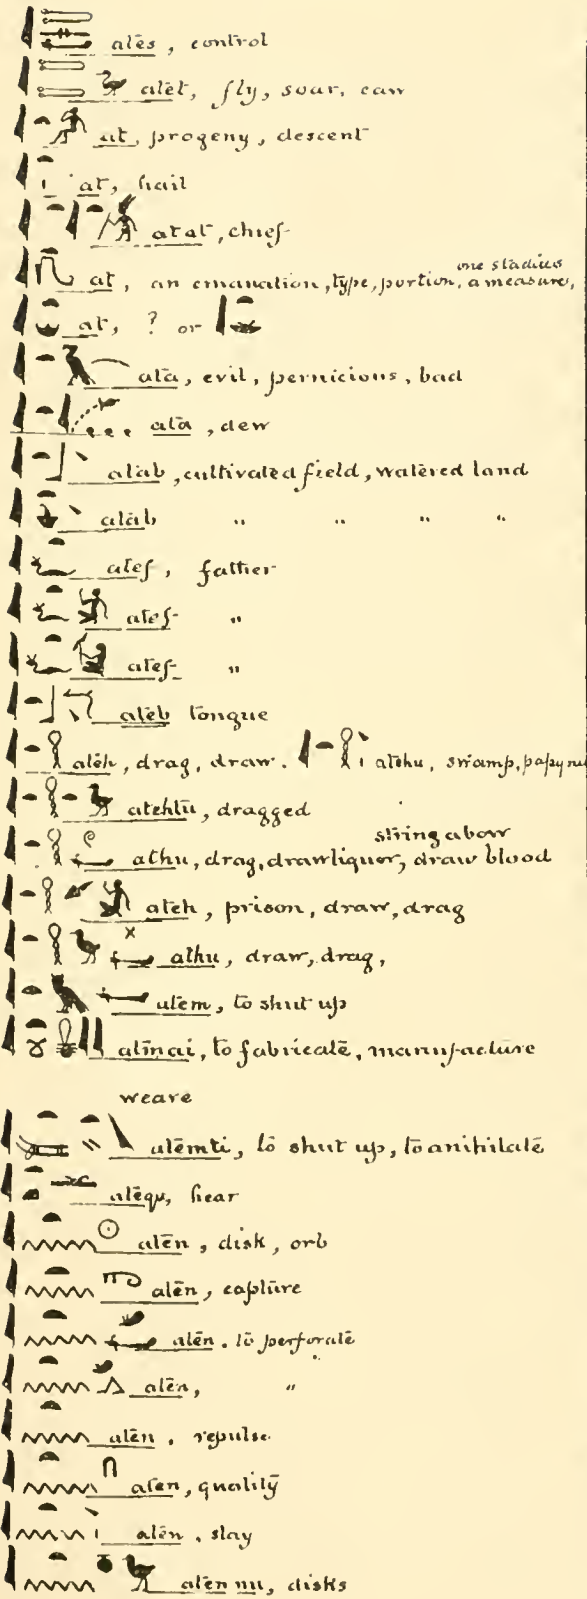 ates, control
atet, fly, soar, caw
at, progeny, descent
at, hail
atat, chief
one stadius
at, an emanation, type, portion, a measure,
at, ? or
ata, evil, pernicious, bad
ata, dew
atab, cultivated field, watered land
atab " " " "
atef, father
atef "
atef "
ateb tongue
ateh, drag, draw. atehu, swamp, papyru
atehtu, dragged
string a bow
athu, drag, draw liquor, draw blood
ateh, prison, draw, drag
athu, draw, drag,
atem, to shut up
atmai, to fabricate, manufacture
weave
atemti, to shut up, to anihilate
atequ, hear
aten, disk, orb
aten, capture
aten, to perforate
aten, "
aten, repulse
aten, quality
aten, slay
aten nu, disks